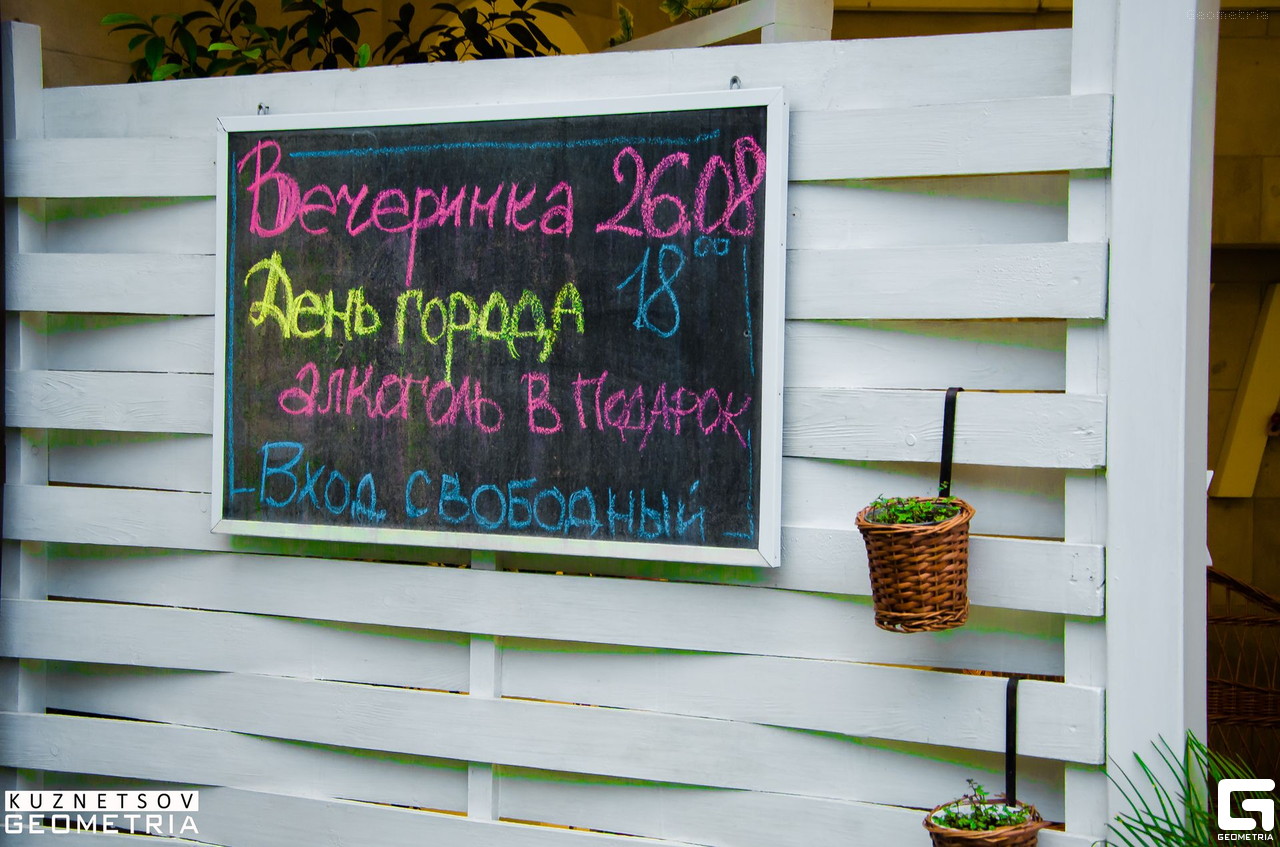 Вечеринка 26.08
18⁰⁰
День города
алкоголь в подарок
Вход свободный
KUZNETSOV
GEOMETRIA
GEOMETRIA
Geometria